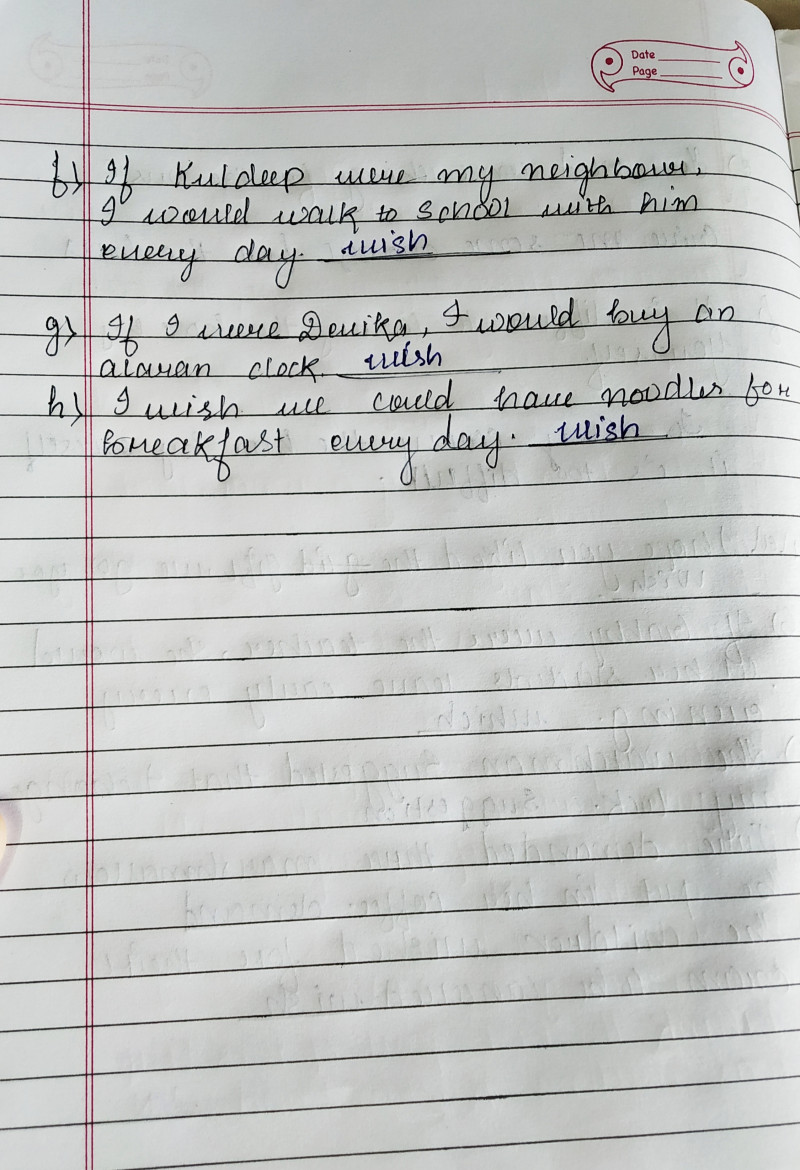 Date
Page
f) If Kuldeep were my neighbour,
I would walk to school with him
every day. wish
g) If I were Devika, I would buy an
alaram clock. wish
h) I wish we could have noodles for
breakfast every day. wish